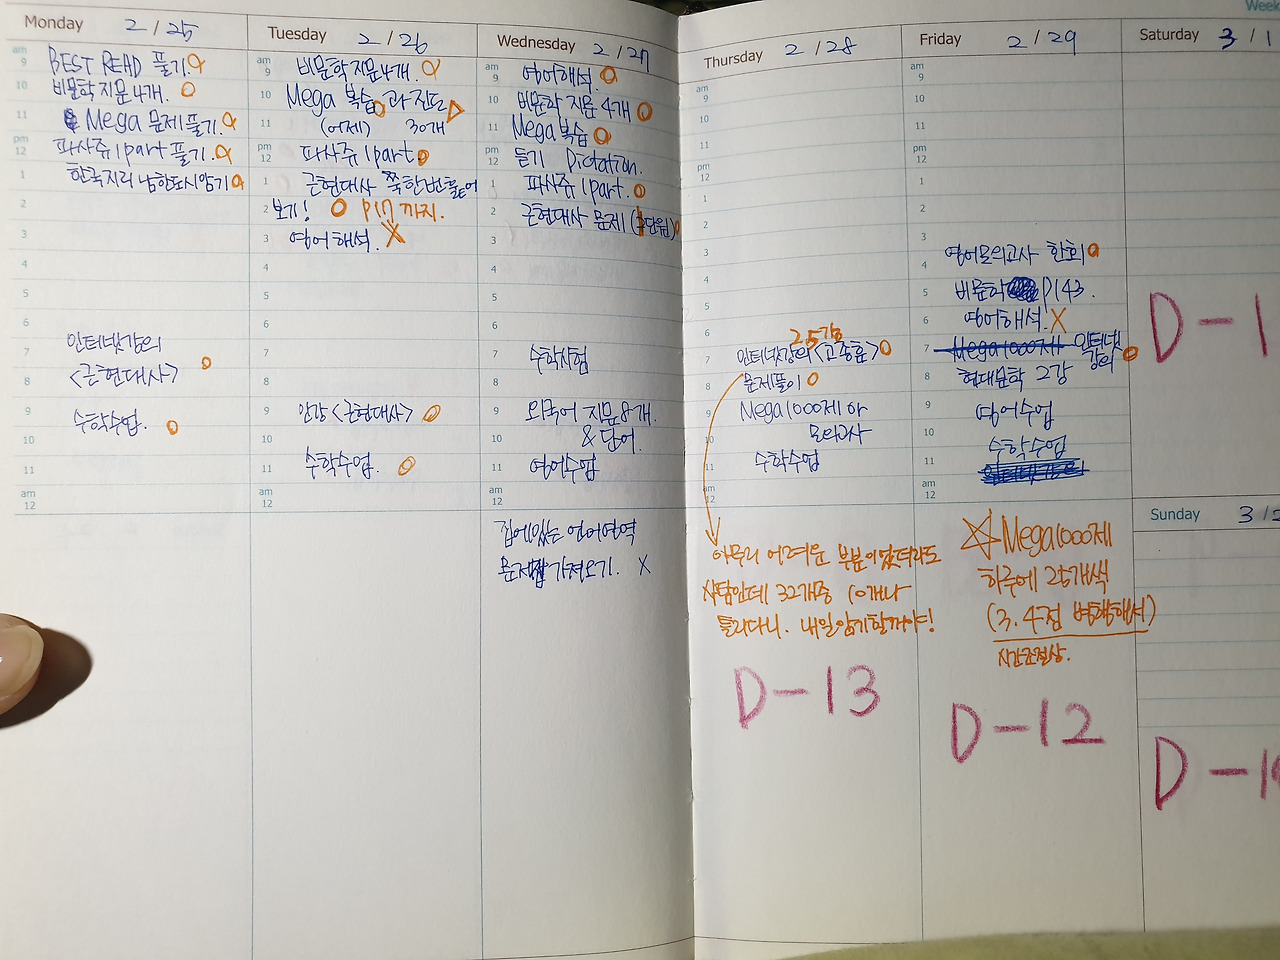 Week
Monday 2 / 25
am 9 BEST READ 풀기.
10 비문학 지문 4개.
11 Mega 문제 풀기.
pm 12 파사쥬 1part 풀기.
1 한국지리 남한도시암기
2
3
4
5
6
7 인터넷강의
8 <근현대사>
9 수학수업.
10
11
am 12
Tuesday 2 / 26
am 9 비문학 지문 4개.
10 Mega 복습 과 진도
11 (어제) 30개
pm 12 파사쥬 1part
1 근현대사 쭉 한번 훑어
2 보기! P17 까지.
3 영어해석. X
4
5
6
7
8
9 인강 <근현대사>
10
11 수학수업.
am 12
Wednesday 2 / 27
am 9 영어해석.
10 비문학 지문 4개
11 Mega 복습
pm 12 듣기 Dictation.
1 파사쥬 1part.
2 근현대사 문제 ( 단원)
3
4
5
6
7 수학시험
8
9 외국어 지문 8개.
10 & 단어.
11 영어수업
am 12
집에있는 언어영역
문제집 가져오기. X
Thursday 2 / 28
am 9
10
11
pm 12
1
2
3
4
5
6 2.5강
7 인터넷강의 <고종훈>
8 문제풀이
9 Mega1000제 아
10 모의고사
11 수학수업
am 12
아무리 어려운 부분이었더라도
사탐인데 32개중 10개나
틀리다니. 내일 암기할꺼야!
D-13
Friday 2 / 29
am 9
10
11
pm 12
1
2
3
4 영어모의고사 한회
5 비문학 P143.
6 영어해석! X
7 Mega1000제 인터넷 강의
8 현대문학 2강
9 영어수업
10 수학수업
11
am 12
☆ Mega1000제
하루에 25개씩
(3.4점 병행해서)
시간조절상.
D-12
Saturday 3 / 1
D-1
Sunday 3 / 2
D-10